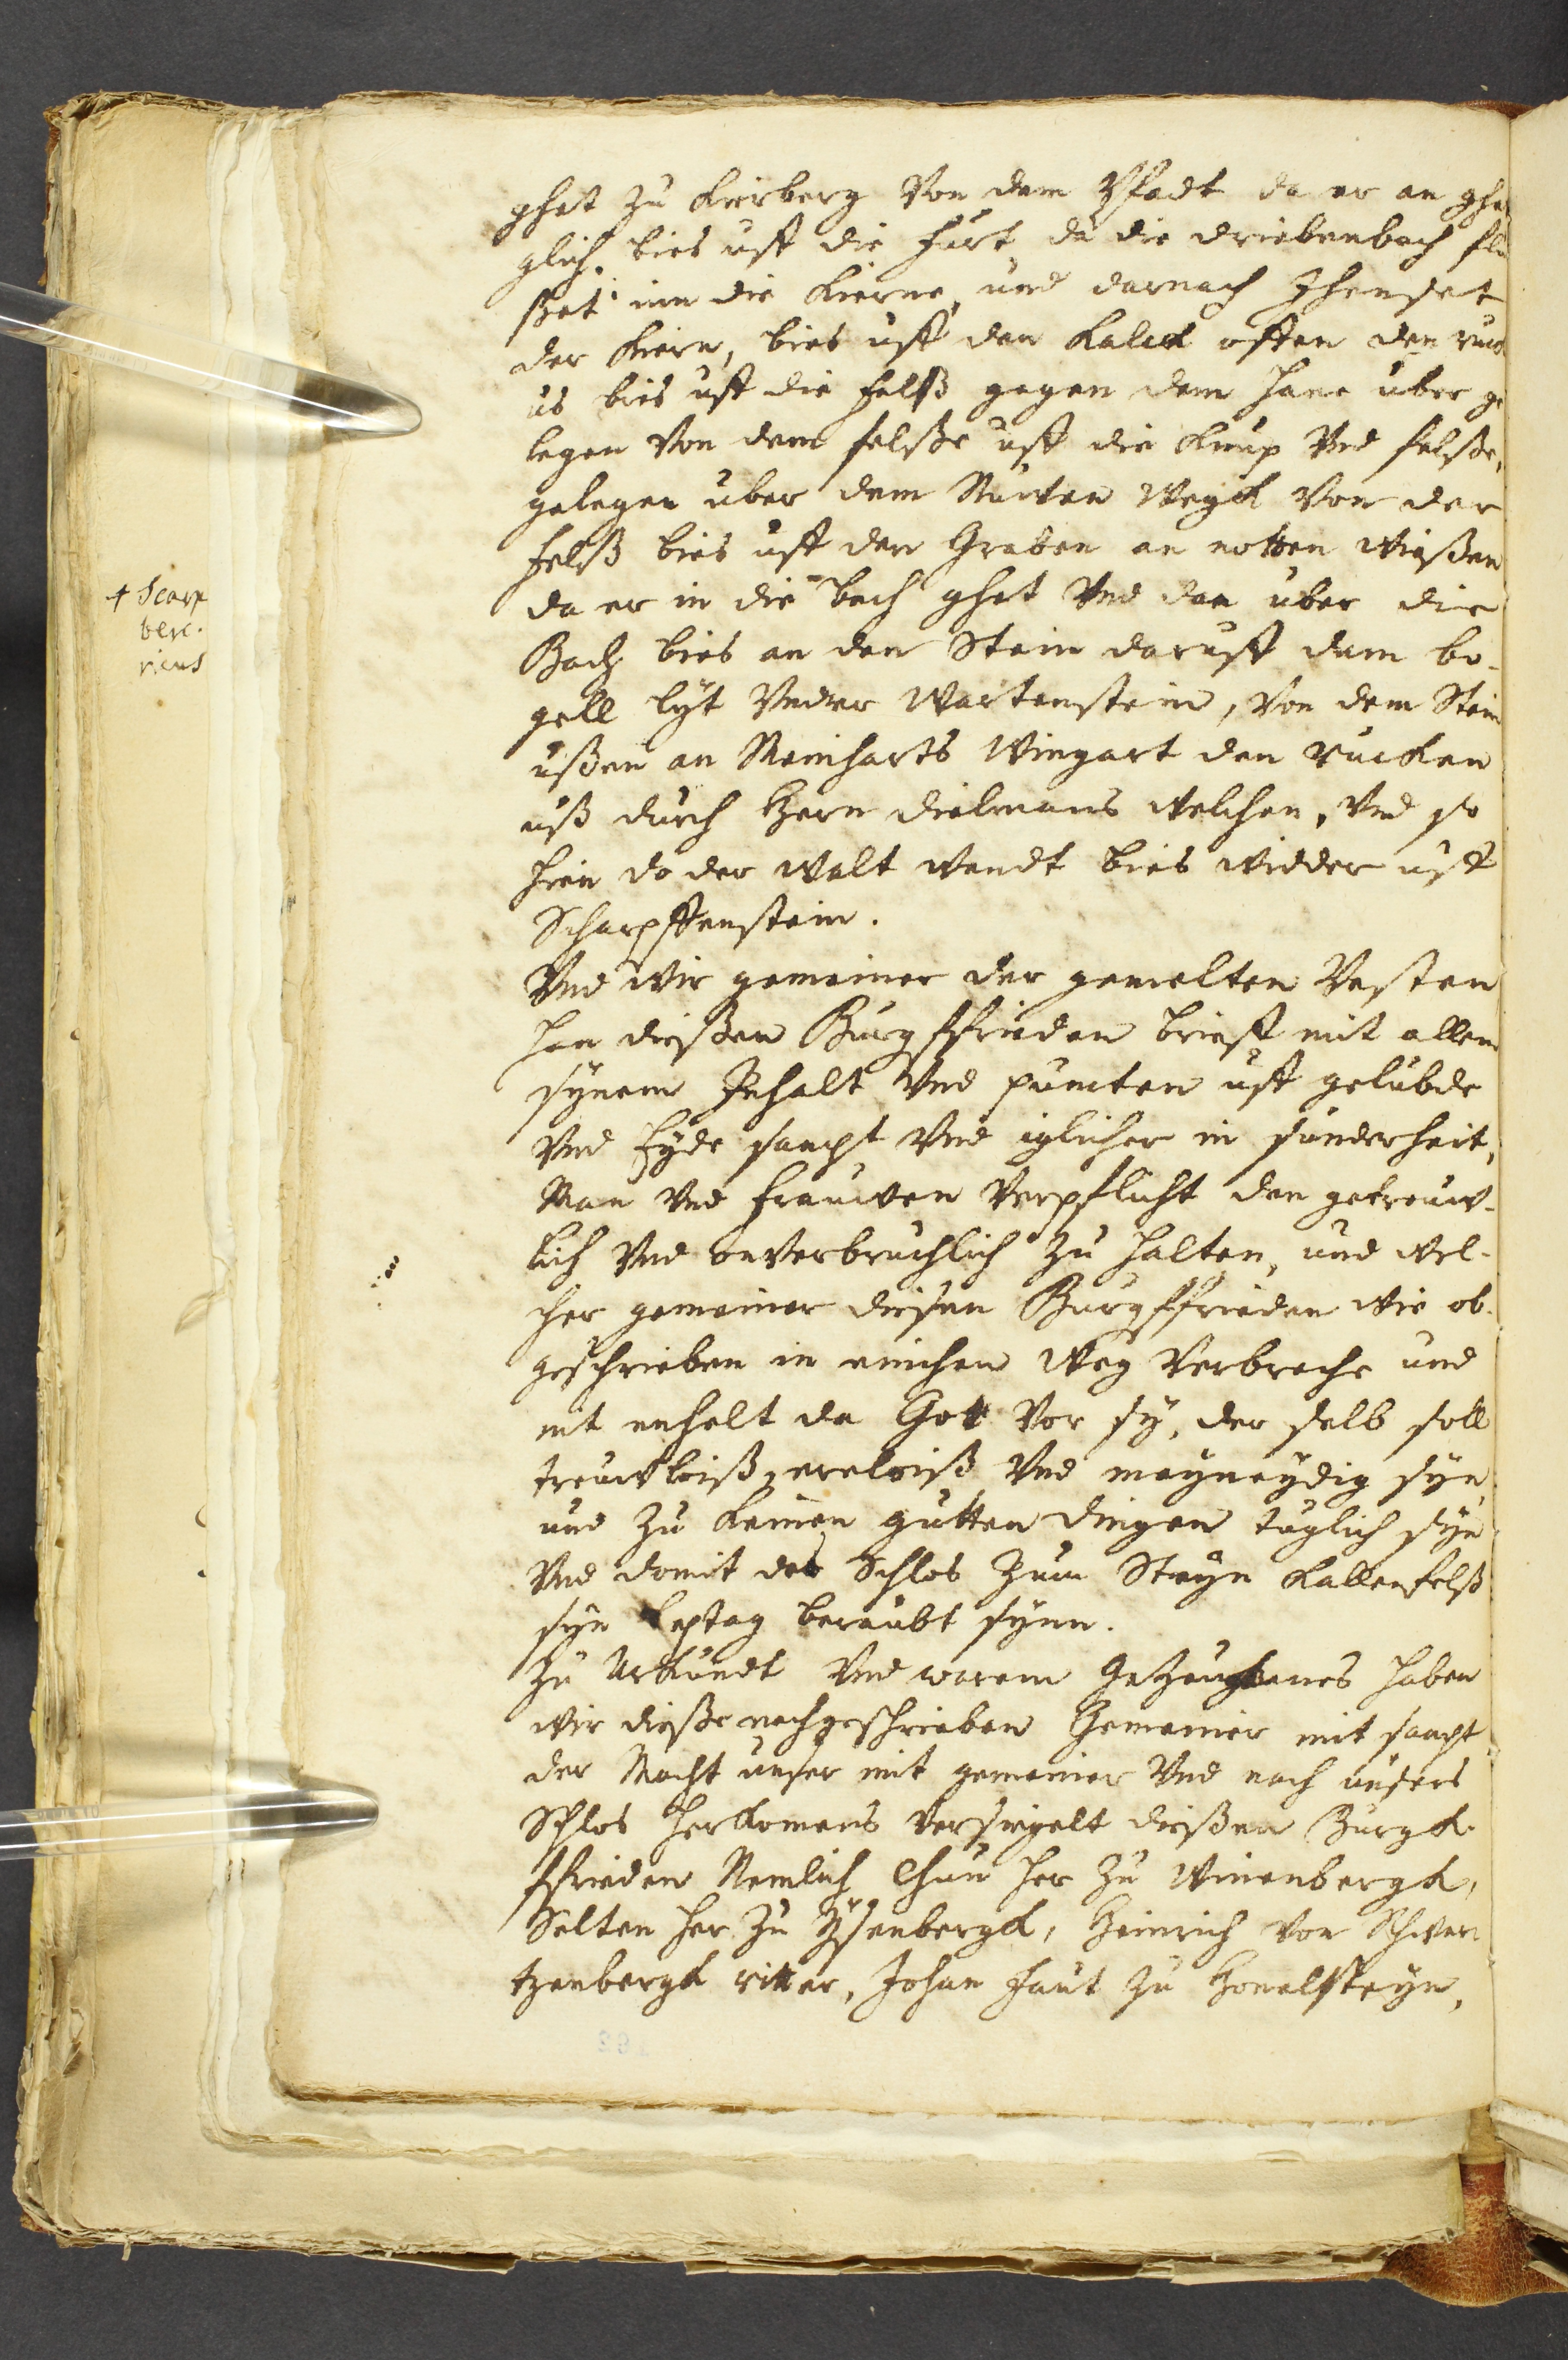 ghet zu Kirberg Von dem Pfadt da er an ghe
glich bies uff die furt da die driebenbach flu
sset inn die Kierne, und darnach Jhenset
der Kiern, bies uff den Kalck offen den ruck
us bies uff die felß gegen dem Hane uber ge
legen Von dem felsße uff die Knup Vnd felsße,
gelegen uber dem Wegk Von der
felß bies uff den Graben an rotten Wießen
da er in die bach ghet Vnd dan uber die
Bach bies an den Stein daruff dem bo-
gell lyt Vnder Wartenstein, Von dem Stein
ußen an Meinharts Wingart den rucken
uß durch Hern Dielmans Welchen, Vnd so
hien do der Walt Wendt bies Widder uff
Scharpffenstein.
Vnd Wir gemeiner der gemelten Vesten
han diessen Burgffrieden brieff mit allem
synem Inhalt Vnd puncten uff gelubde
Vnd Eyde sampt Vnd iglicher in sunderheit,
Man Vnd frauwen Verpflicht den getreuw-
lich Vnd onverbruchlich zu halten, und Wel-
cher gemeiner diesen Burgffrieden Wie ob-
geschrieben in einichen Weg Verbreche und
nit enhelt da Gott Vor sy, der selb soll
treuwloiß, ereloiß Vnd meyneydig syn
und zu keinen gutten dingen tuglich syn
Vnd domit des Schlos zum Steyn Kallenfelß
syn leptag beraubt synn.
Zu Urkundt Vnd warem haben
Wir dieße nachgeschrieben Gemeiner mit sampt
der Macht unser mit gemeiner Vnd nach unsers
Schlos Herkomens Versiegelt dießen Burgk-
ffrieden Nemlich Chun Her zu Winenbergk,
Her zu Ysenbergk, Heinrich Von Schwar
tzenbergk ritter, Johan faut zu Honelsteyn,
+ Scarp